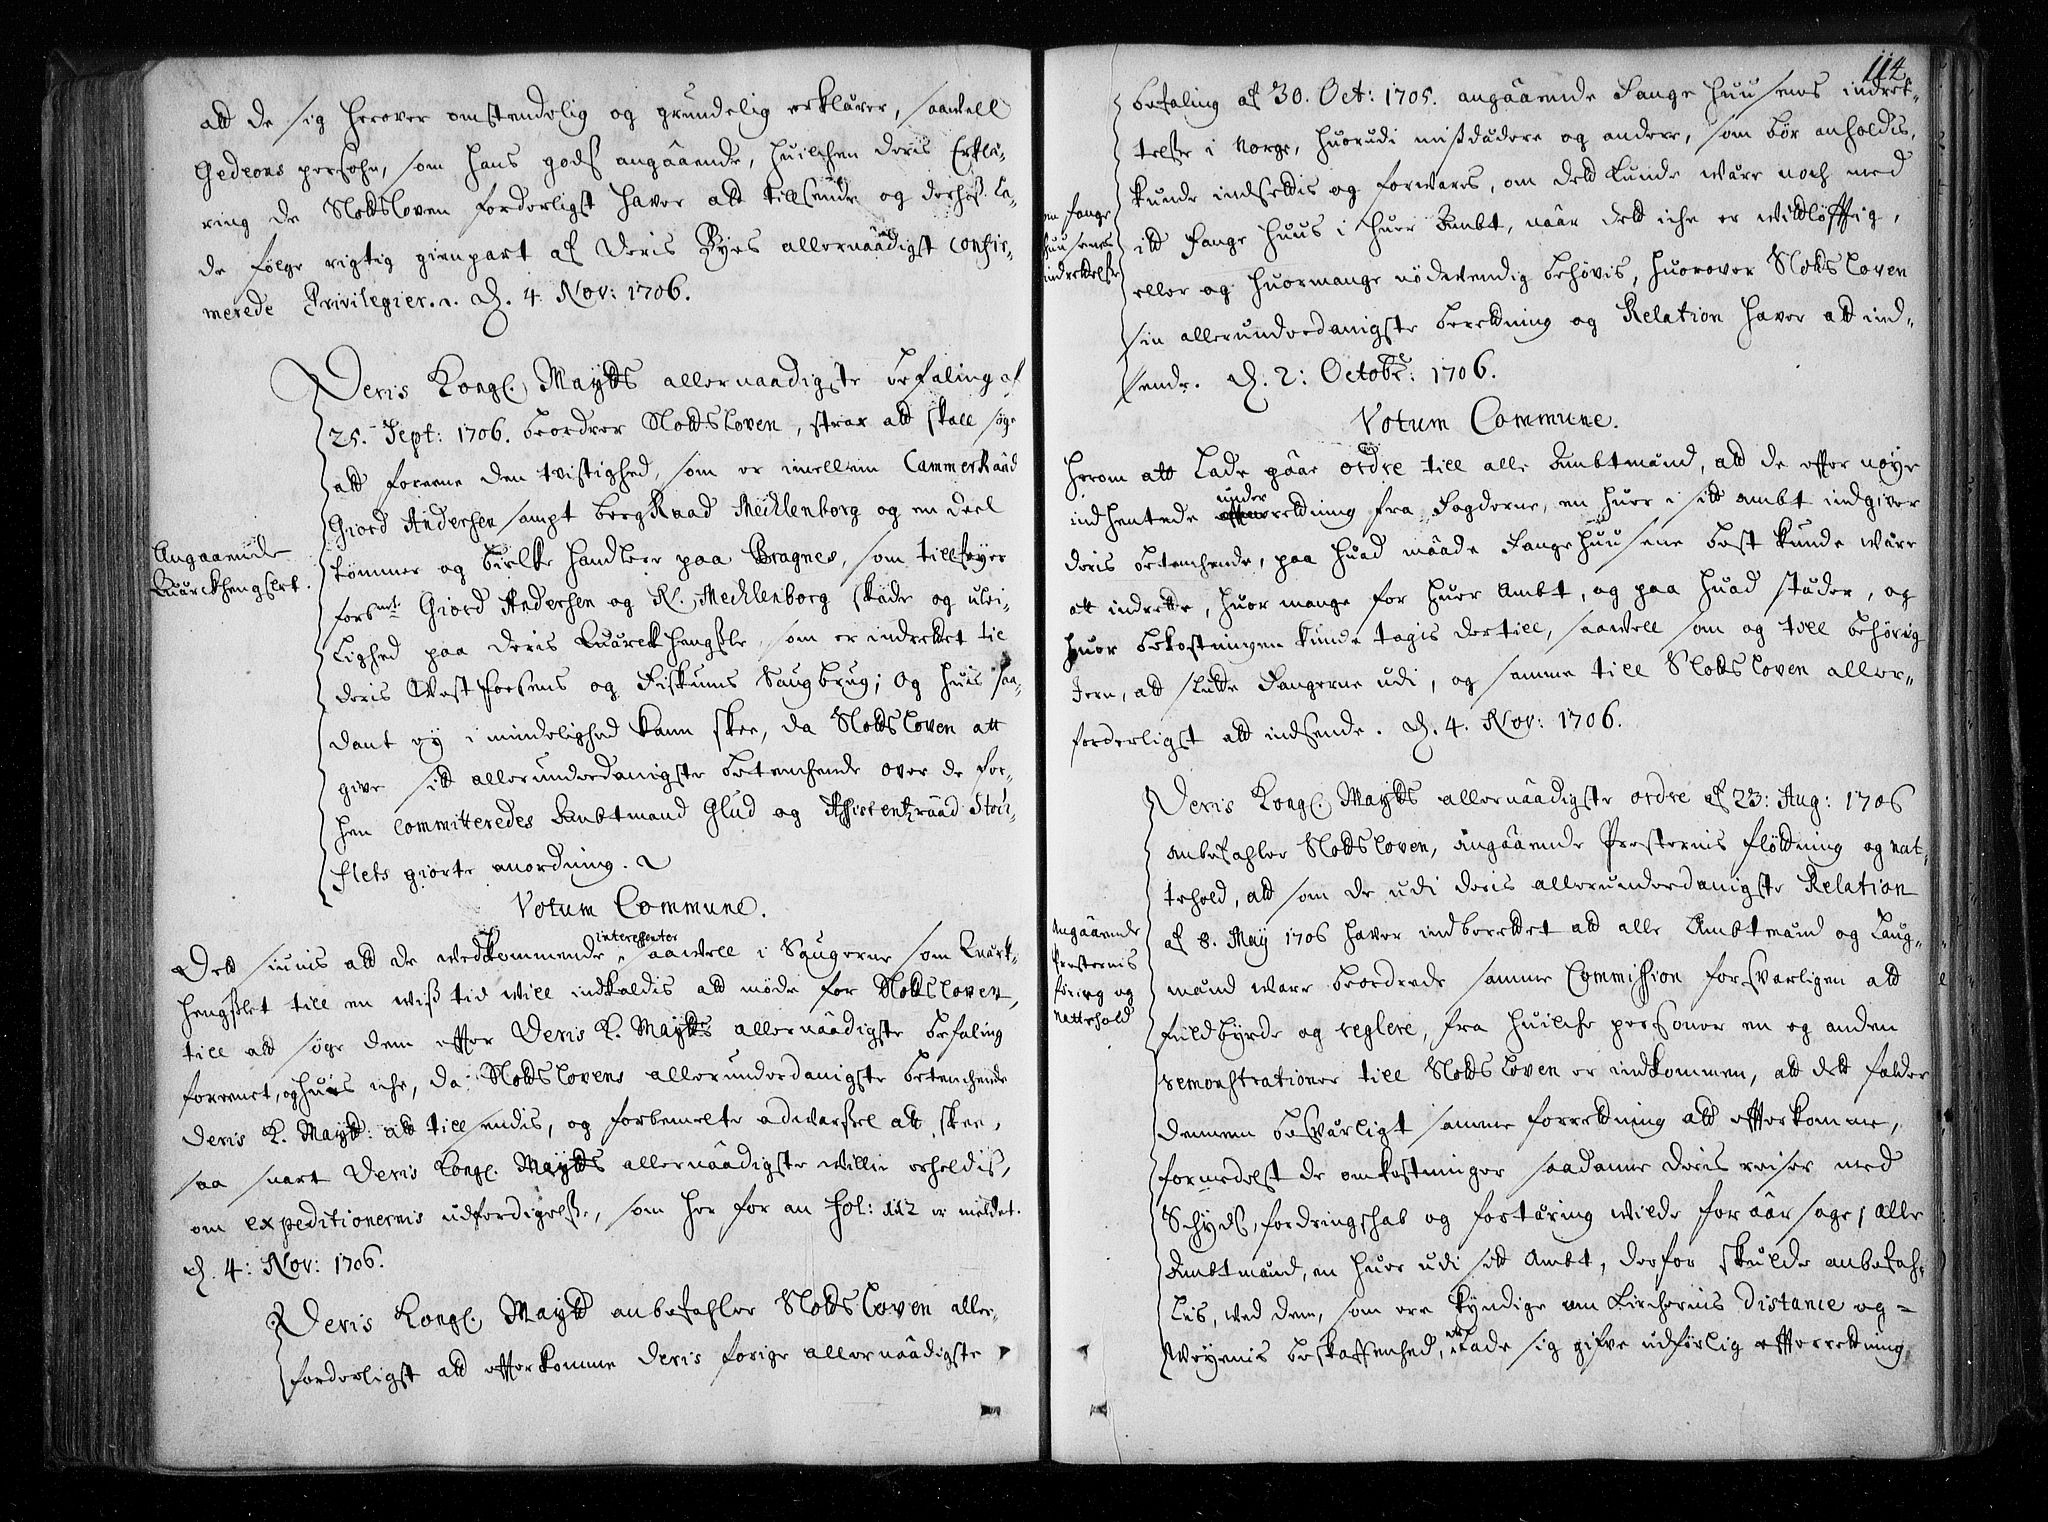 att de sig herover omstendelig og grundelig erklærer, saavell
Gedeons persohn, som hans godß angaaende, huilchen deris Erklæ-
ring de Slotzloven forderligst haver att tillsende og derhoß la-
de følge rigtig gienpart af deris Byes allernaadigst confir-
merede Privilegier. D. 4. Nov: 1706.
Deris Kongl. Maytts allernaadigste befaling af
25. Sept: 1706. beordrer Slotzloven, strax att skall søge
att foreene den tvistighed, som er imellem CammerRaad
Giord Andersen sampt bergRaad Mechlenborg og en deel
tømmer og bielke handlere paa Bragnes, som tillføyer
forsnt. Giord Andersen og R. Mechlenborg skade og ulei-
lighed paa deris Quærckhengsle, som er indrettet til
deris Westfossens og Fiskums Saugbrug; Og huis saa-
dant ey i mindelighed kann skee, da Slotzloven att
give sitt allerunderdanigste betenchende over de for-
hen committeredes Ambtmand Glud og Assistentzraad Stoc-
flets giorte anordning.
Angaaende
Quærckhengslet.
Votum Commune.
Det siunis att de wedkommende interessenter saawell i Saugerne som Quærk-
hengßlet till en wiß tid will indkaldis att møde for Slotzloven,
till att søge dem effter Deris K. Maytts allernaadigste befaling
foreenet, og huis iche, da Slotzlovens allerunderdanigste betenchende
Deris K. Maytt: att tillsendis, og forbemelte advarßel att skee,
saa snart Deris Kongl. Maytts allernaadigste willie erholdis,
om expeditionernis udferdigelße, som her for an fol: 112 er meldet.
D. 4: Nov: 1706.
Deris Kongl. Maytt anbefahler Slotzloven aller-
forderligst att effterkomme deris forige allernaadigste
114
befaling af 30. Oct: 1705. angaaende Fange huusenes indret-
telße i Norge, huorudi mißdædere og andre, som bør anholdis,
kunde indsettis og forwares, om det kunde wære noch med
itt Fange huus i huer Ambt, naar dett iche er widtløfftig,
eller og huormange nødvendig behøvis, huorover Slotzloven
sin allerunderdanigste beretning og Relation haver att ind-
sende. D. 2: Octobr: 1706.
en fange
huusenes
indrettelße
Votum Commune.
Herom att lade gaae ordre till alle Ambtmænd, att de effter nøye
indhentede underretning fra Fogderne, en huer i sitt ambt indgiver
deris betenchende, paa huad maade Fangehuusene best kunde wære
att indrette, huor mange for huer Ambt, og paa huad stæder, og
huor bekostningen kunde tagis dertill, saawell som og till behørig
Jern, att slutte Fangerne udi, og samme till Slotzloven aller-
forderligst att indsende. D. 4. Nov: 1706.
Deris Kongl. Maytts allernaadigste ordre af 23: Aug: 1706
anbefahler Slotzloven, angaaende Presternis fløttning og nat-
tehold, att som de udi deris allerunderdanigste Relation
af 8. May 1706 haver indberettet att alle Ambtmænd og Laug-
mænd ware beordrede samme Commission forsvarligen att
fuldbyrde og reglere, fra huilche personer en og anden
remonstrationer till Slotzloven er indkommen, att dett falder
dennem besværligt samme forretning att effterkomme,
formedelst de omkostninger saadanne deris reiser med
Schydß, fordringschab og fortæring wilde foraarsage, Alle
Ambtmænd, en huer udi sitt Ambt, derfor skulde anbefah-
lis, ved dem, som ere kyndige om Kirchernis distance og
Weyenis beskaffenhed, att lade sig gifve udførlig effterretning
Angaaende
Presternis
føring og
Nattehold